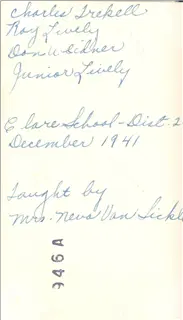 Charles Trekell
Roy Lively
Don Weidner
Junior Lively
Clare School - Dist. 2
December 1941
Taught by
Mrs. Neva Van Sickl
946A